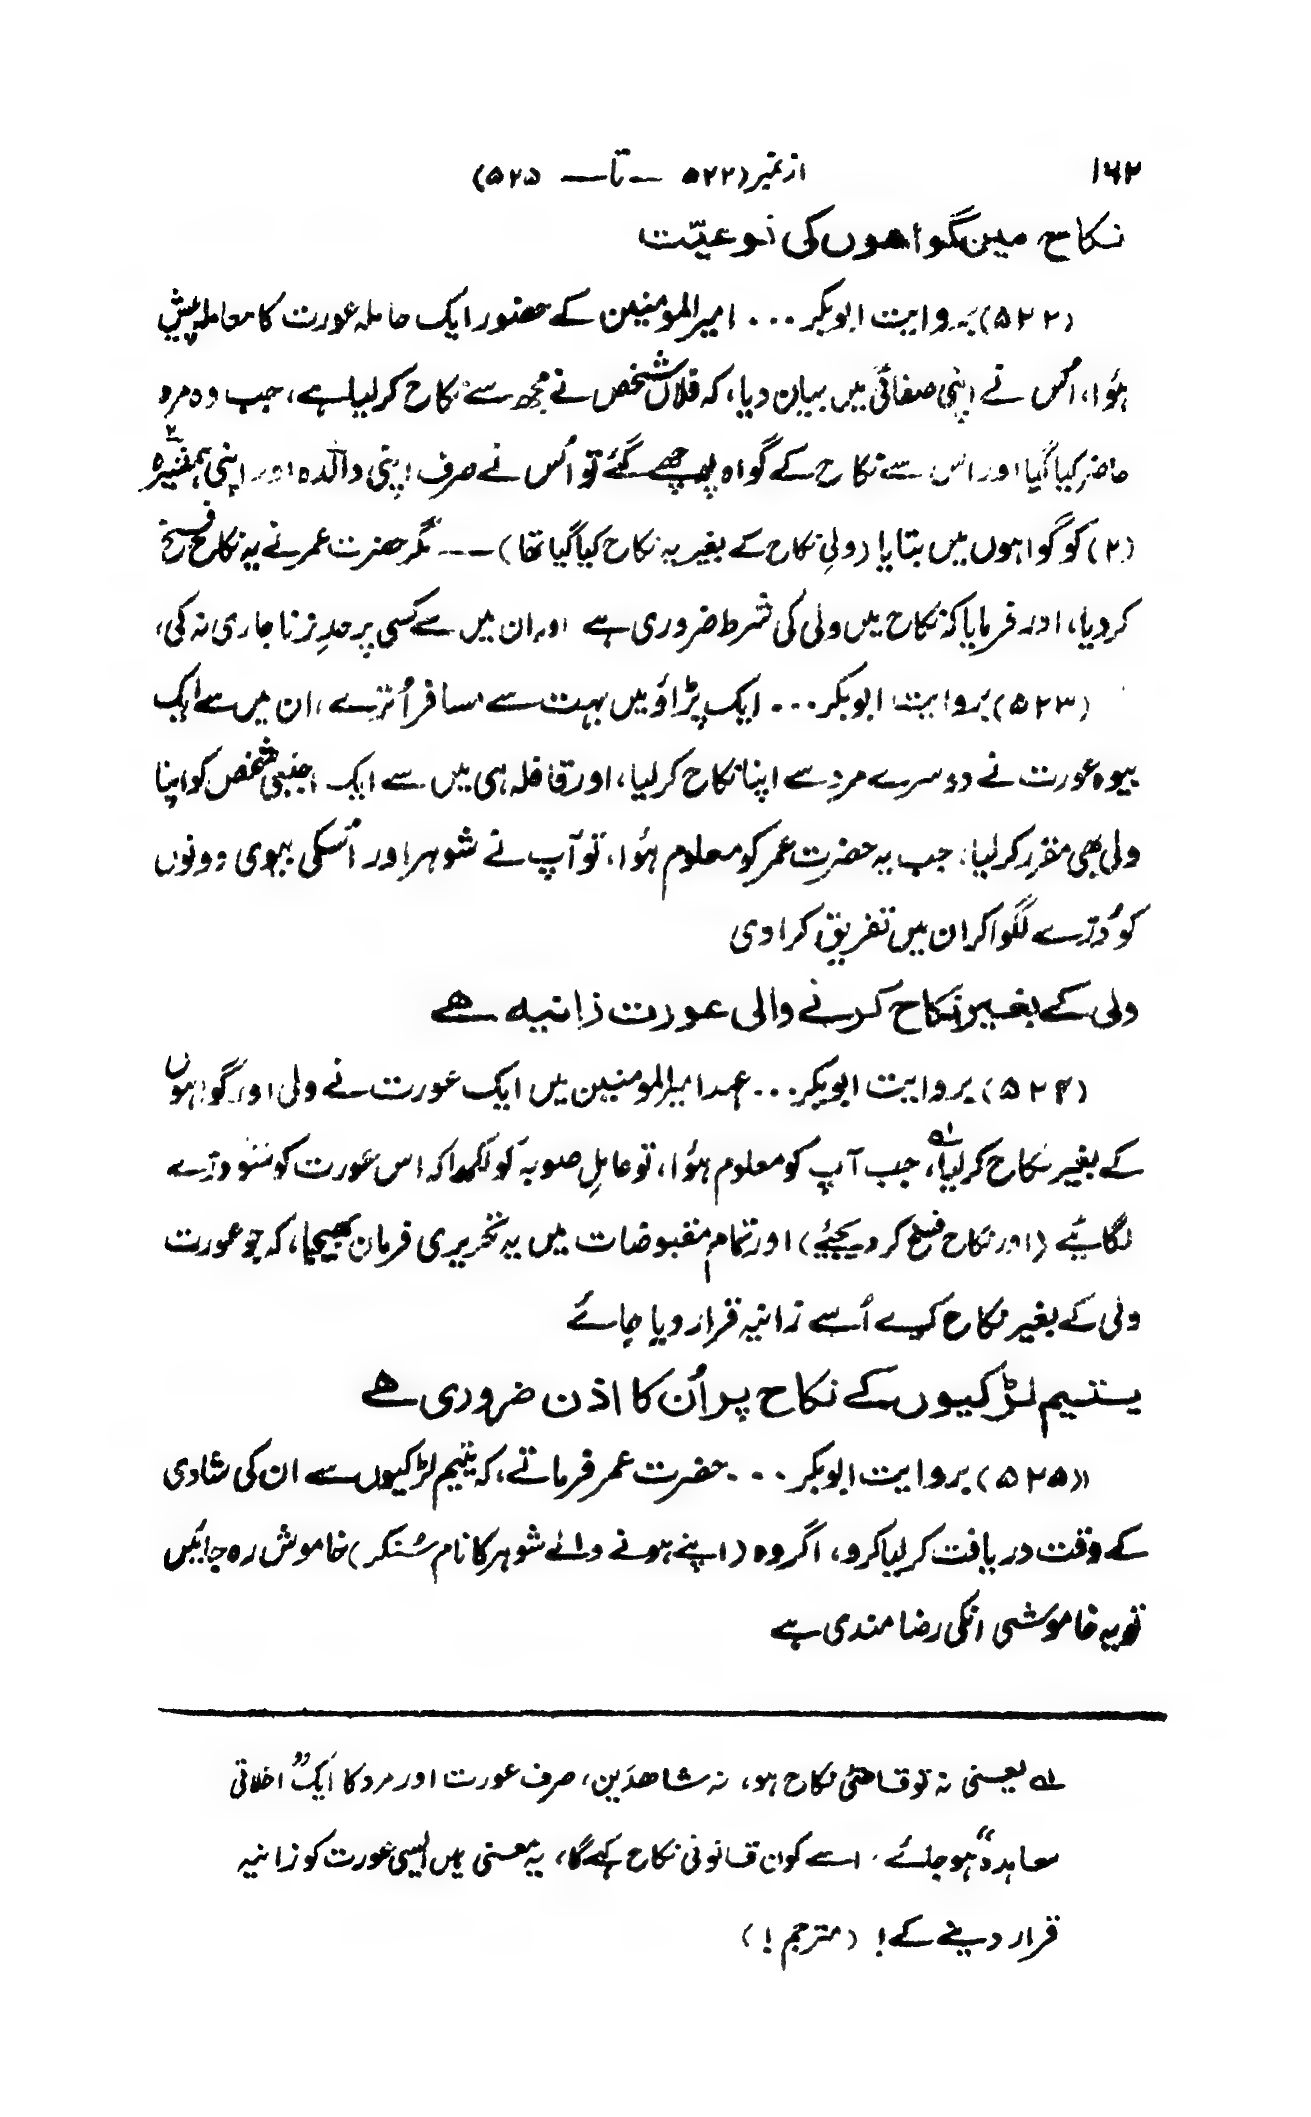 ۱۶۲ از نمبر (۵۲۲ — تا — ۵۲۵)
نکاح میں گواھوں کی نوعیّت
(۵۲۲) بروایت ابوبکر ... امیرالمومنین کے حضور ایک حاملہ عورت کا معاملہ پیش
ہؤا، اُس نے اپنی صفائی میں بیان دیا، کہ فلاں شخص نے مجھ سے نکاح کرلیا ہے، جب وہ مرد
حاضر کیا گیا اور اس سے نکاح کے گواہ پوچھے گئے تو اُس نے صرف اپنی والدہ اور اپنی ہمشیرہ
(۲) کو گواہوں میں بتایا (ولیِ نکاح کے بغیر یہ نکاح کیا گیا تھا) --- مگر حضرت عمر نے یہ نکاح فسخ
کردیا، اور فرمایا کہ نکاح میں ولی کی شرط ضروری ہے اور ان میں سے کسی پر حدِ زنا جاری نہ کی،
(۵۲۳) بروایت ابوبکر ... ایک پڑاؤ میں بہت سے مسافر اُترے، ان میں سے ایک
بیوہ عورت نے دوسرے مرد سے اپنا نکاح کرلیا، اور قافلہ ہی میں سے ایک اجنبی شخص کو اپنا
ولی بھی مقرر کرلیا، جب یہ حضرت عمر کو معلوم ہؤا، تو آپ نے شوہر اور اُسکی بیوی دونوں
کو دُرّے لگوا کر ان میں تفریق کرا دی
ولی کے بغیر نکاح کرنے والی عورت زانیہ ھے
(۵۲۴) بروایت ابوبکر ... عہد امیرالمومنین میں ایک عورت نے ولی اور گواہوں
کے بغیر نکاح کرلیا ۱ہ، جب آپ کو معلوم ہؤا، تو عاملِ صوبہ کو لکھوا کہ اس عورت کو سَنو درّے
لگائیے (اور نکاح فسخ کر دیجئے) اور تمام مقبوضات میں یہ تحریری فرمان بھیجا، کہ جو عورت
ولی کے بغیر نکاح کرے اُسے زانیہ قرار دیا جائے
یتیم لڑکیوں کے نکاح پر اُن کا اذن ضروری ھے
(۵۲۵) بروایت ابوبکر ... حضرت عمر فرماتے، کہ یتیم لڑکیوں سے ان کی شادی
کے وقت دریافت کرلیا کرو، اگر وہ (اپنے ہونے والے شوہر کا نام سُنکر) خاموش رہ جائیں
تو یہ خاموشی انکی رضامندی ہے
۱ہ یعنی نہ تو قاضئی نکاح ہو، نہ شاھدَین، صرف عورت اور مرد کا ایک ”اخلاقی
معاہدہ“ ہو جائے، اسے کون قانونی نکاح کہے گا، یہ معنی ہیں ایسی عورت کو زانیہ
قرار دینے کے! (مترجم!)